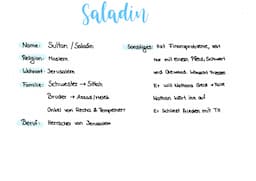 Saladin
Name: Sultan / Saladin
Religion: Moslem
Wohnort: Jerusalem
Familie: Schwester → Sittah
Bruder → Assad/
Onkel von Recha & Tempelherr
Beruf: Herrscher von Jerusalem
Sonstiges: Hat Finanzprobleme, war
nur mit einem Pferd, Schwert
und Gewand
Er will Nathans Geld + Rate
Nathan
Er schließt Frieden mit